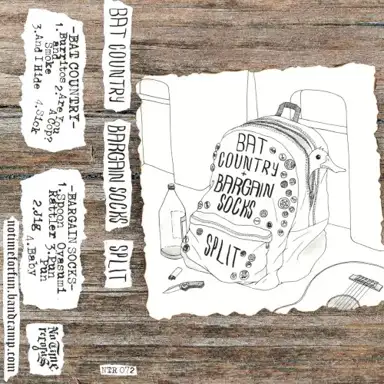 -BAT COUNTRY-
1.Burritos 2.Are You
and A Cop?
Smoke
3.And I Hide 4.Sick
-BARGAIN SOCKS-
1.Spoon Oyasumi
Rattler 3.Pun
Pun
2.Jig 4.Baby
notimeforfun.bandcamp.com
No Time
records
BAT COUNTRY
BARGAIN SOCKS
SPLIT
NTR 072
BAT
COUNTRY
+
BARGAIN
SOCKS
SPLIT